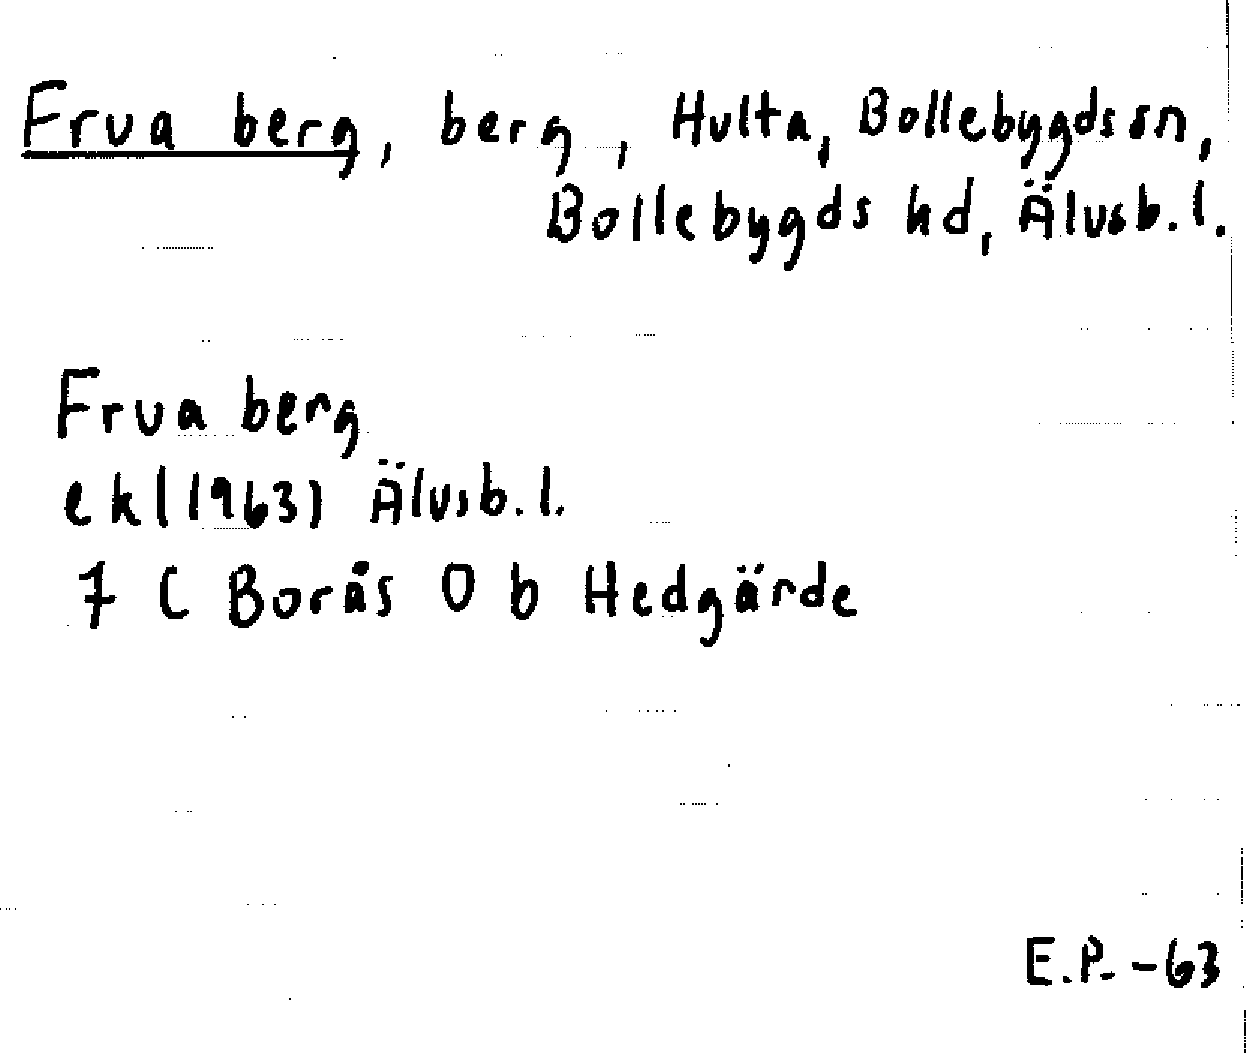 Frua berg, berg, Hulta, Bollebygds sn,
Bollebygds hd, Älvsb. l.
Frua berg
ek (1963) Älvsb. l.
7 C Borås O b Hedgärde
E.P. -63